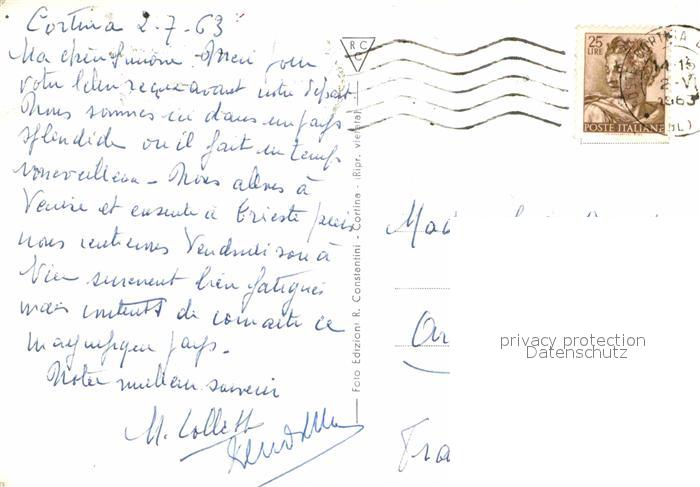 Cortina 2-7-63
Ma chère Simone - Merci pour
votre reçue avant notre départ
Nous sommes ici dans un pays
splendide où il fait un temps
merveilleux - Nous allons à
Venise et ensuite à Trieste puis
nous rentrerons Vendredi soir à
surement bien fatigués
mais contents de connaitre ce
magnifique pays.
Notre meilleur souvenir
M. Collett
R C C
Foto Edizioni R. Constantini - Cortina - (Ripr. vietata)
25
LIRE
POSTE ITALIANE
CORTINA
14-15
2-VI
1963
BL)
Mad
privacy protection
Datenschutz
Fra